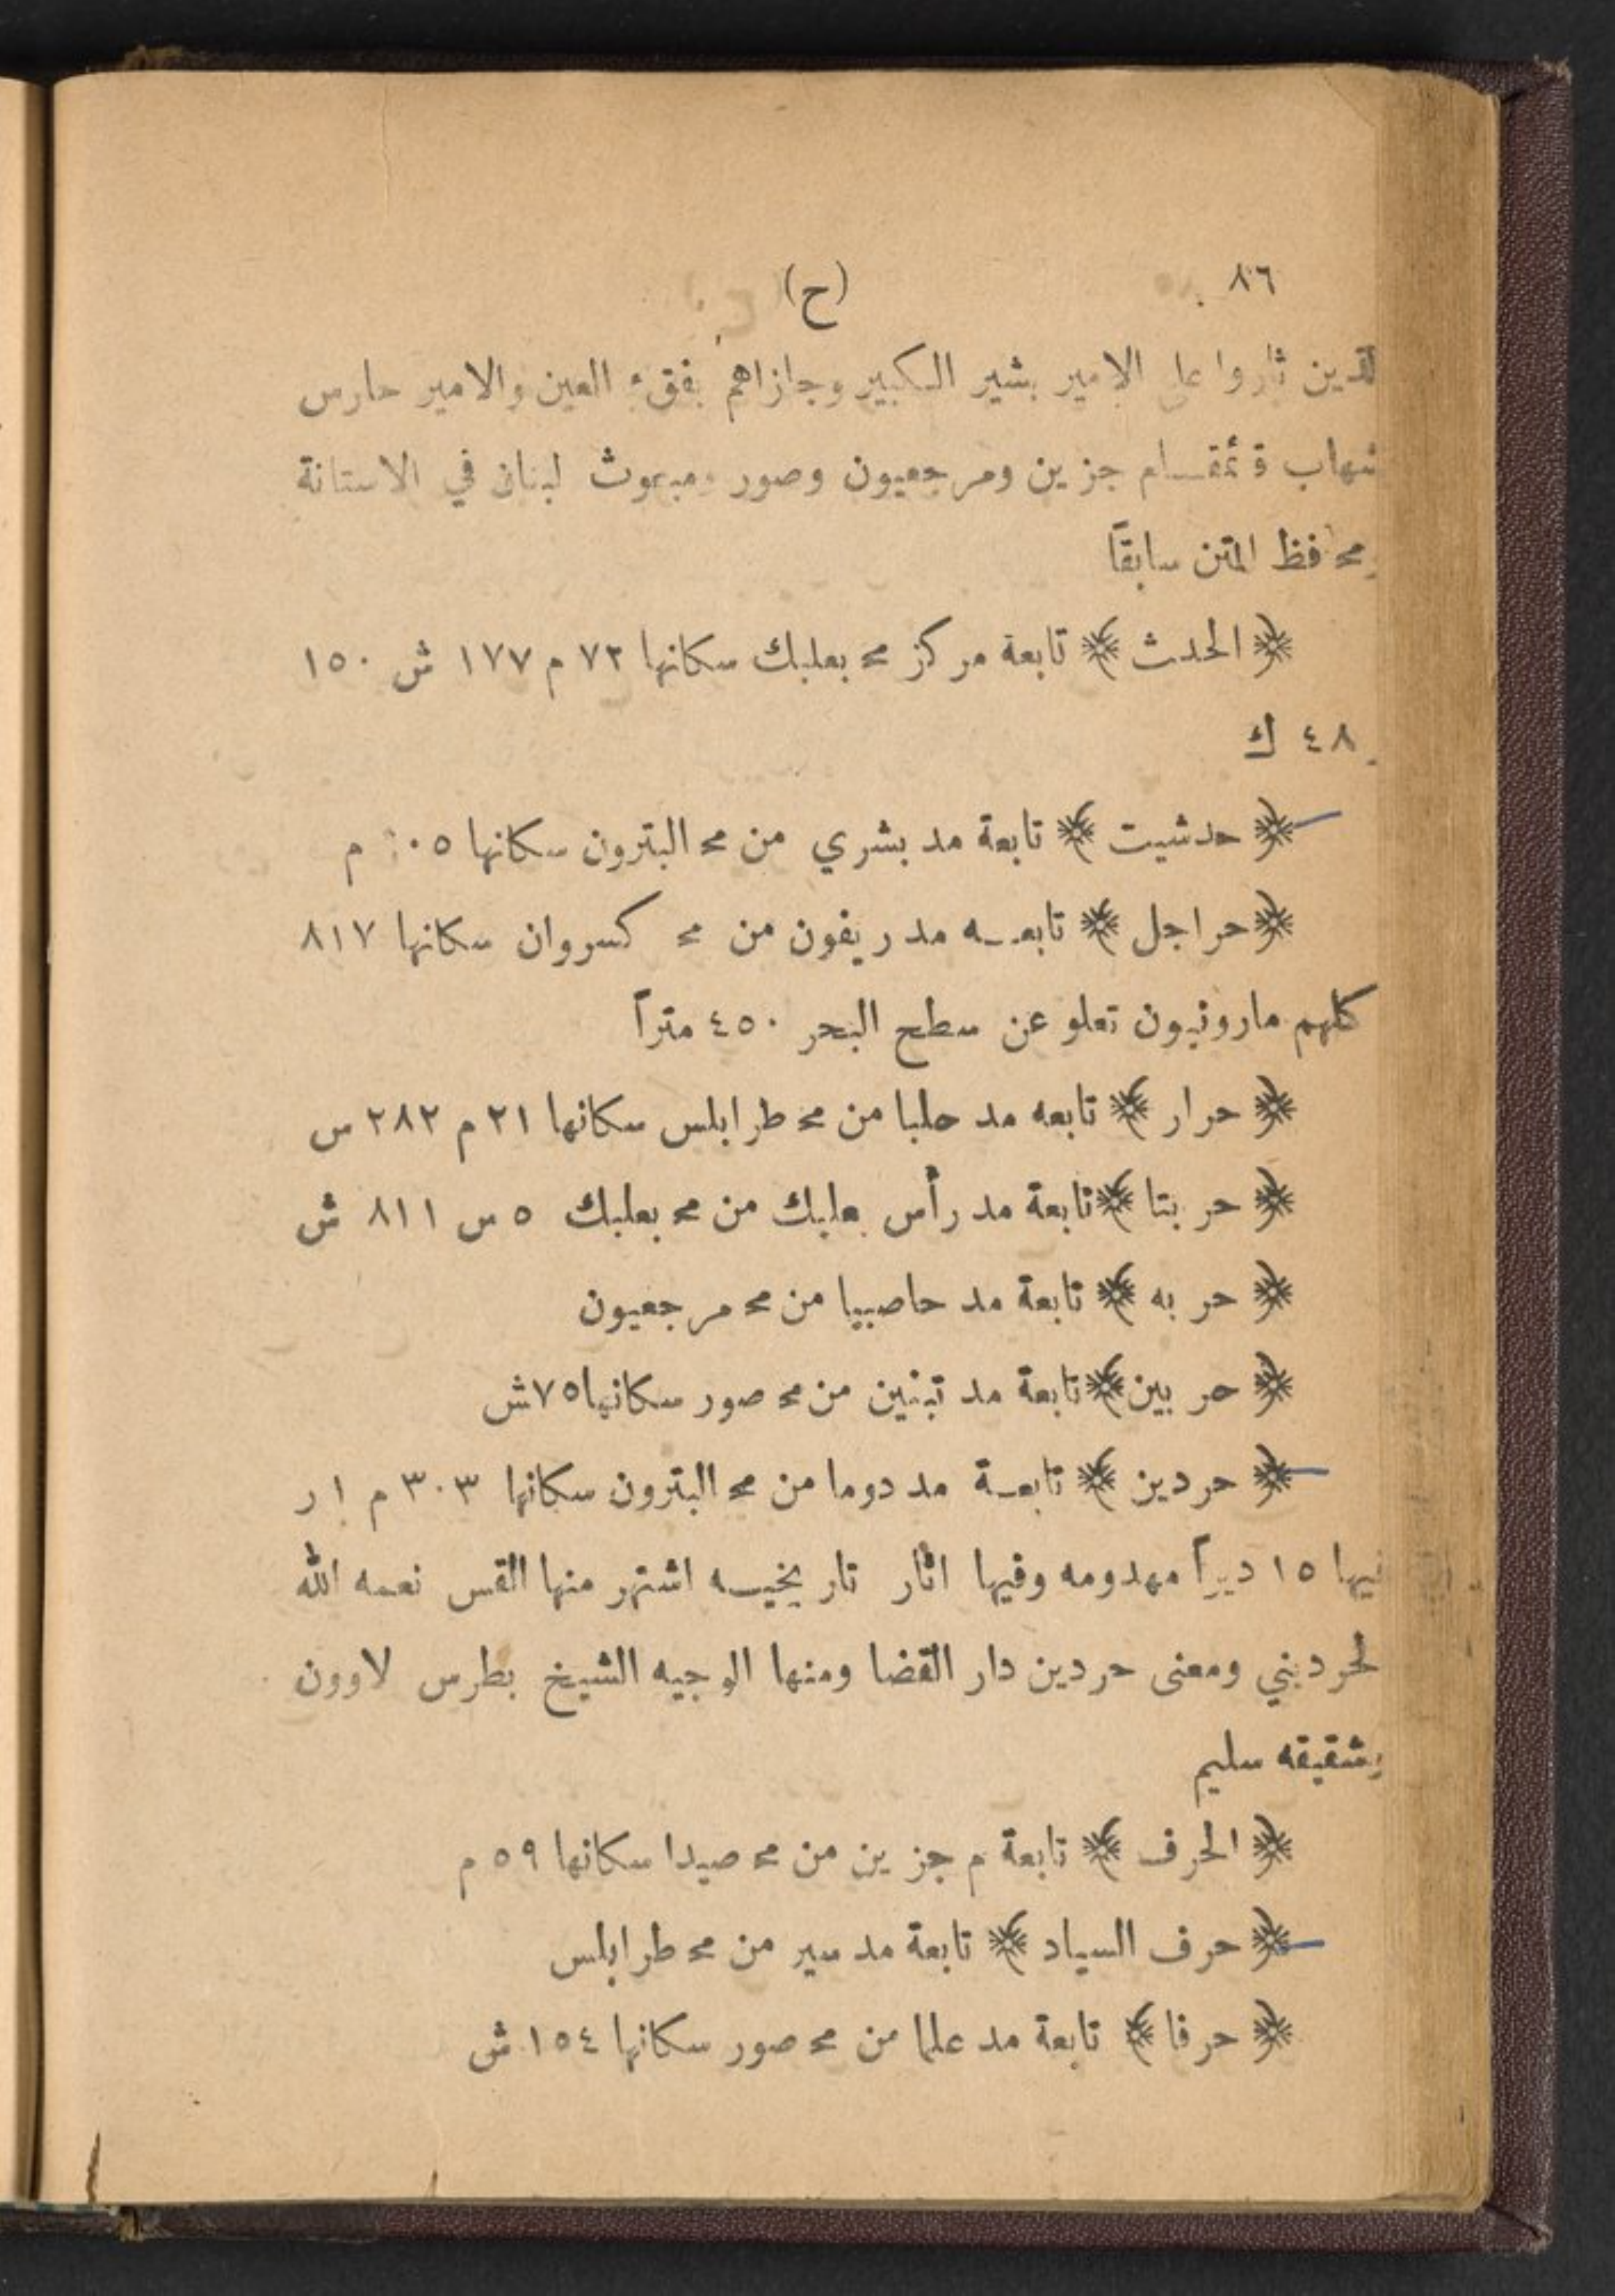 ٨٦ (ح)
الذين ثاروا على الامير بشير الكبير وجازاهم بفقء العين والامير حارس
شهاب قئمقام جزين ومرجعيون وصور ومبعوث لبنان في الاستانة
ومحافظ المتن سابقاً
﴿ الحدث ﴾ تابعة مركز مح بعلبك سكانها ٧٢ م ١٧٧ ش ١٥٠
٤٨ ك
﴿ حدشيت ﴾ تابعة مد بشري من مح البترون سكانها م
﴿ حراجل ﴾ تابعه مد ريفون من مح كسروان سكانها ٨١٧
كلهم مارونيون تعلو عن سطح البحر ٤٥٠ متراً
﴿ حرار ﴾ تابعه مد حلبا من مح طرابلس سكانها ٢١ م ٢٨٢ س
﴿ حر بتا ﴾ تابعة مد رأس بعلبك من مح بعلبك ٥ س ٨١١ ش
﴿ حر به ﴾ تابعة مد حاصبيا من مح مرجعيون
﴿ حر بين ﴾ تابعة مد تبنين من مح صور سكانها ٧٥ ش
﴿ حردين ﴾ تابعة مد دوما من مح البترون سكانها ٣٠٣ م ١ ر
فيها ١٥ ديراً مهدومه وفيها اثار تاريخيه اشتهر منها القس نعمه الله
لحرديني ومعنى حردين دار القضا ومنها الوجيه الشيخ بطرس لاوون
وشقيقه سليم
﴿ الحرف ﴾ تابعة م جزين من مح صيدا سكانها ٥٩ م
﴿ حرف السياد ﴾ تابعة مد سير من مح طرابلس
﴿ حرفا ﴾ تابعة مد علما من مح صور سكانها ١٥٤ ش